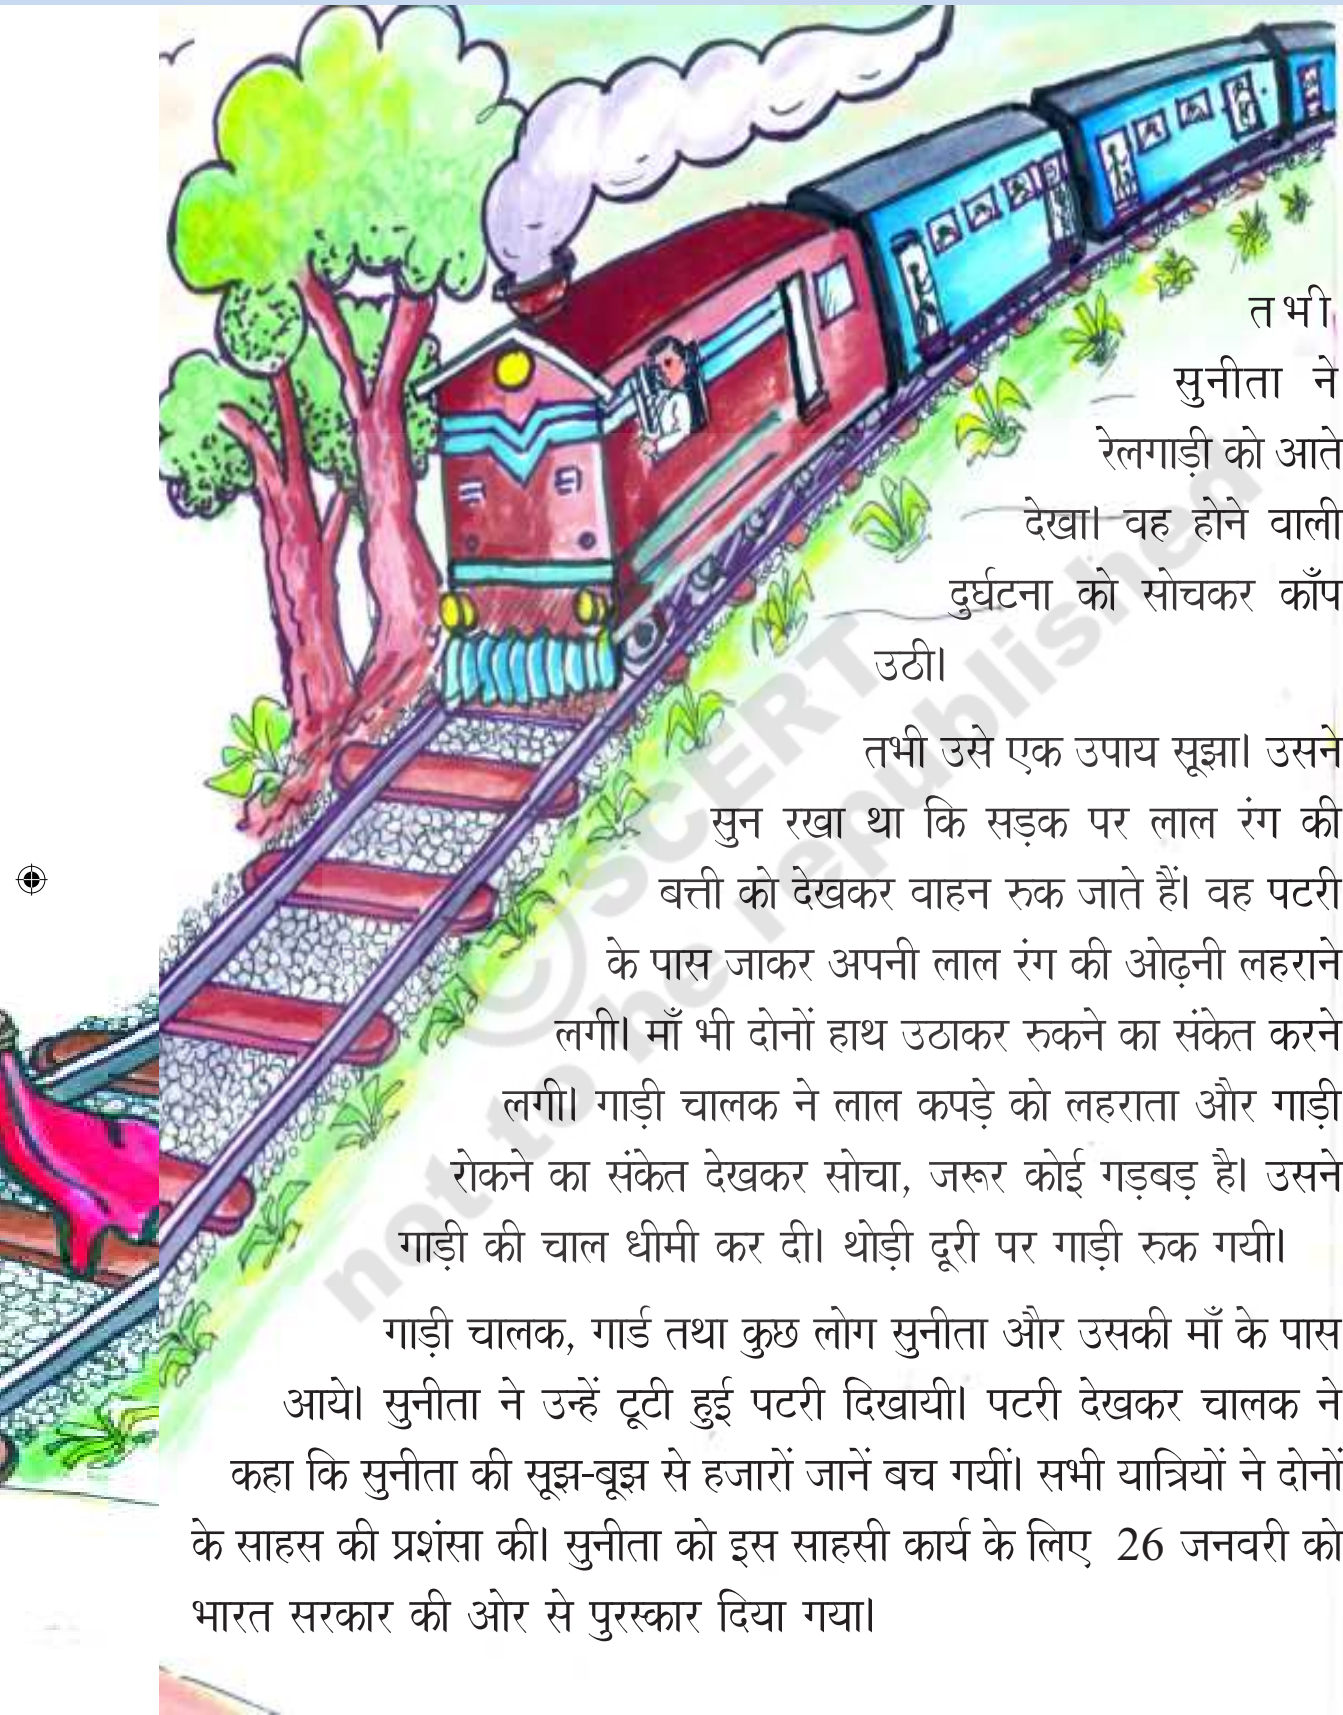 तभी
सुनीता ने
रेलगाड़ी को आते
देखा। वह होने वाली
दुर्घटना को सोचकर काँप
उठी।
तभी उसे एक उपाय सूझा। उसने
सुन रखा था कि सड़क पर लाल रंग की
बत्ती को देखकर वाहन रुक जाते हैं। वह पटरी
के पास जाकर अपनी लाल रंग की ओढ़नी लहराने
लगी। माँ भी दोनों हाथ उठाकर रुकने का संकेत करने
लगी। गाड़ी चालक ने लाल कपड़े को लहराता और गाड़ी
रोकने का संकेत देखकर सोचा, जरूर कोई गड़बड़ है। उसने
गाड़ी की चाल धीमी कर दी। थोड़ी दूरी पर गाड़ी रुक गयी।
गाड़ी चालक, गार्ड तथा कुछ लोग सुनीता और उसकी माँ के पास
आये। सुनीता ने उन्हें टूटी हुई पटरी दिखायी। पटरी देखकर चालक ने
कहा कि सुनीता की सूझ-बूझ से हजारों जानें बच गयीं। सभी यात्रियों ने दोनों
के साहस की प्रशंसा की। सुनीता को इस साहसी कार्य के लिए 26 जनवरी को
भारत सरकार की ओर से पुरस्कार दिया गया।
© SCERT
not to be republished